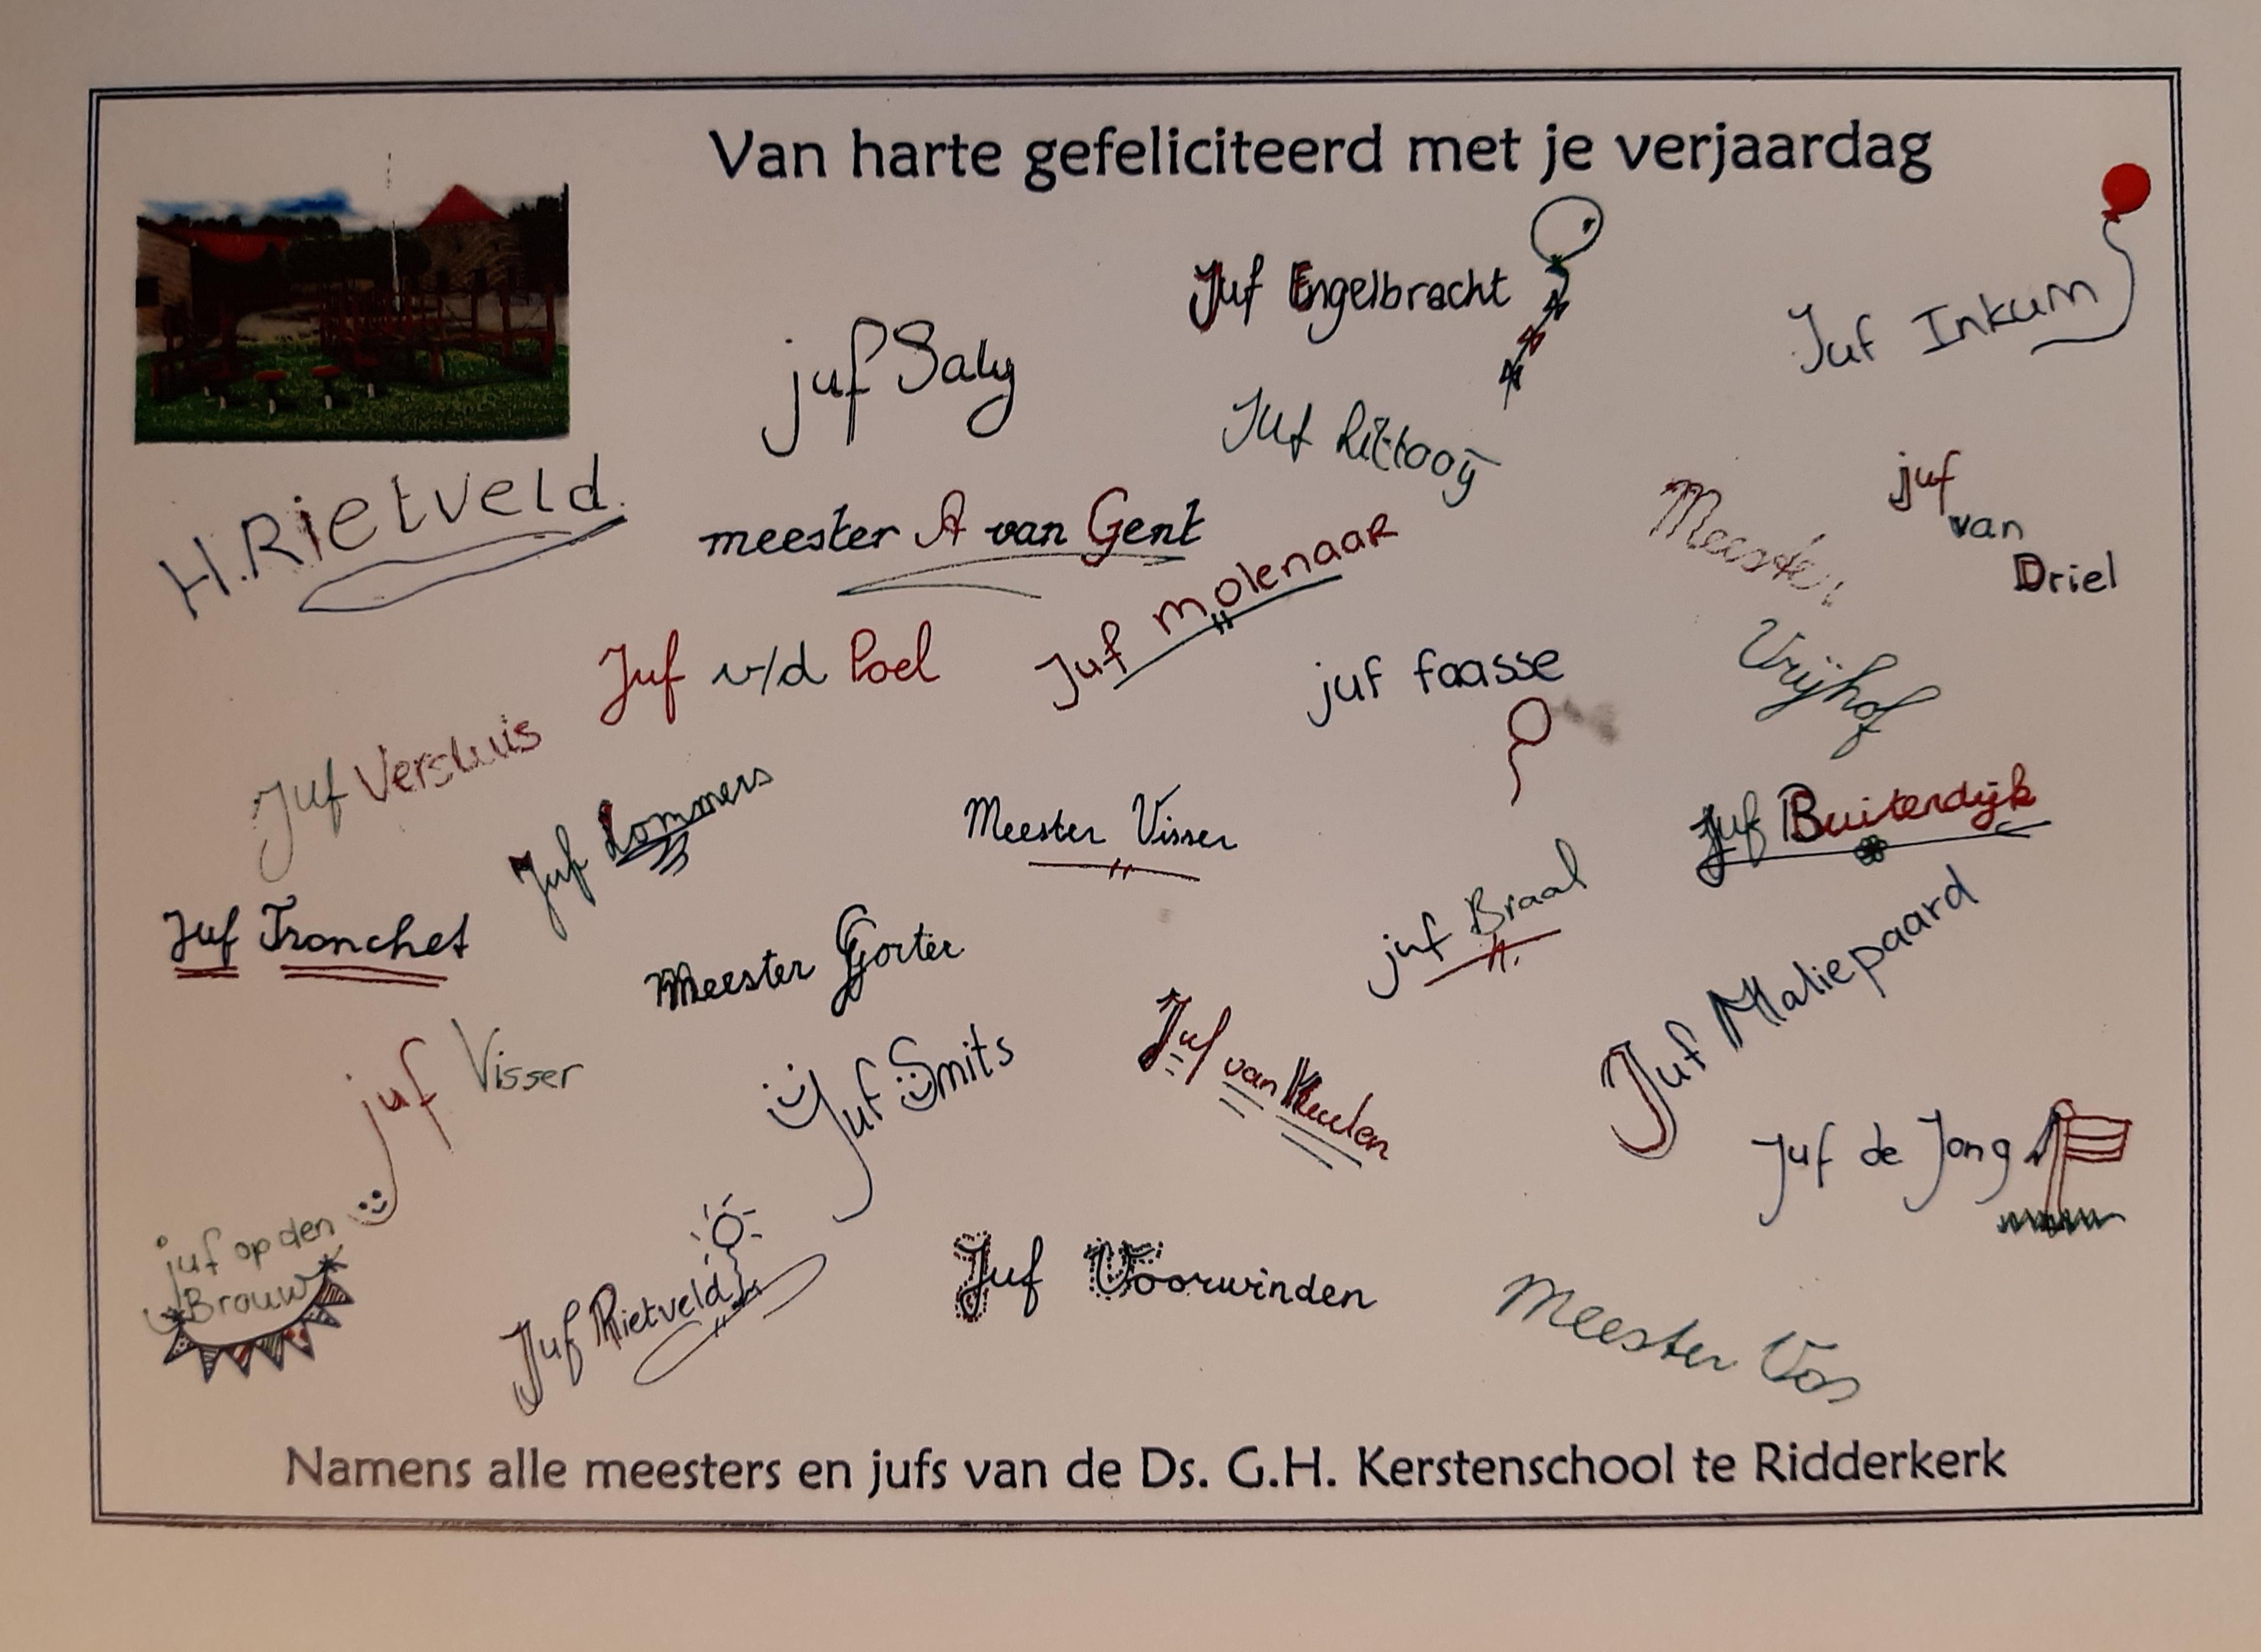 Van harte gefeliciteerd met je verjaardag
Juf Engelbracht
Juf Inkum
juf Saly
Juf
H. Rietveld.
meester A van Gent
juf
van
Driel
Meester
Vrijhof
Juf molenaar
Juf v/d Poel
juf faasse
Juf Versluis
Juf Lommers
Meester Visser
Juf Buitendijk
Juf Tronchet
Meester Gorter
juf Braal
Juf Maliepaard
juf Visser
Juf Smits
Juf van Keulen
Juf de Jong
juf op den
Brouw
Juf Rietveld
Juf Voorwinden
Meester Vos
Namens alle meesters en jufs van de Ds. G.H. Kerstenschool te Ridderkerk